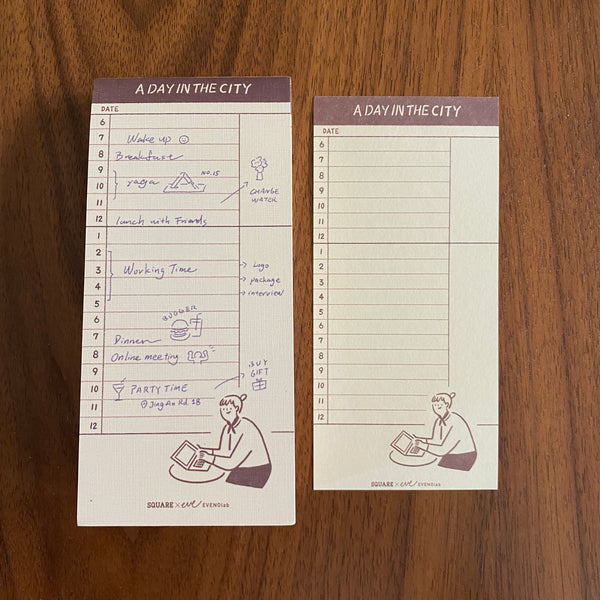 A DAY IN THE CITY
DATE
6
7 Wake up
8 Breakfast
9
10 yaga NO.15
11
12 lunch with Friends
CHANGE
WATER
1
2
3 Working Time
4
5
→ Logo
→ package
→ interview
6 BUGGER
7 Dinner
8 Online meeting
9
10 PARTY TIME
11 @Jing An Rd. 18
12
BUY
GIFT
SQUARE × eve EVENOlab
A DAY IN THE CITY
DATE
6
7
8
9
10
11
12
1
2
3
4
5
6
7
8
9
10
11
12
SQUARE × eve EVENOlab